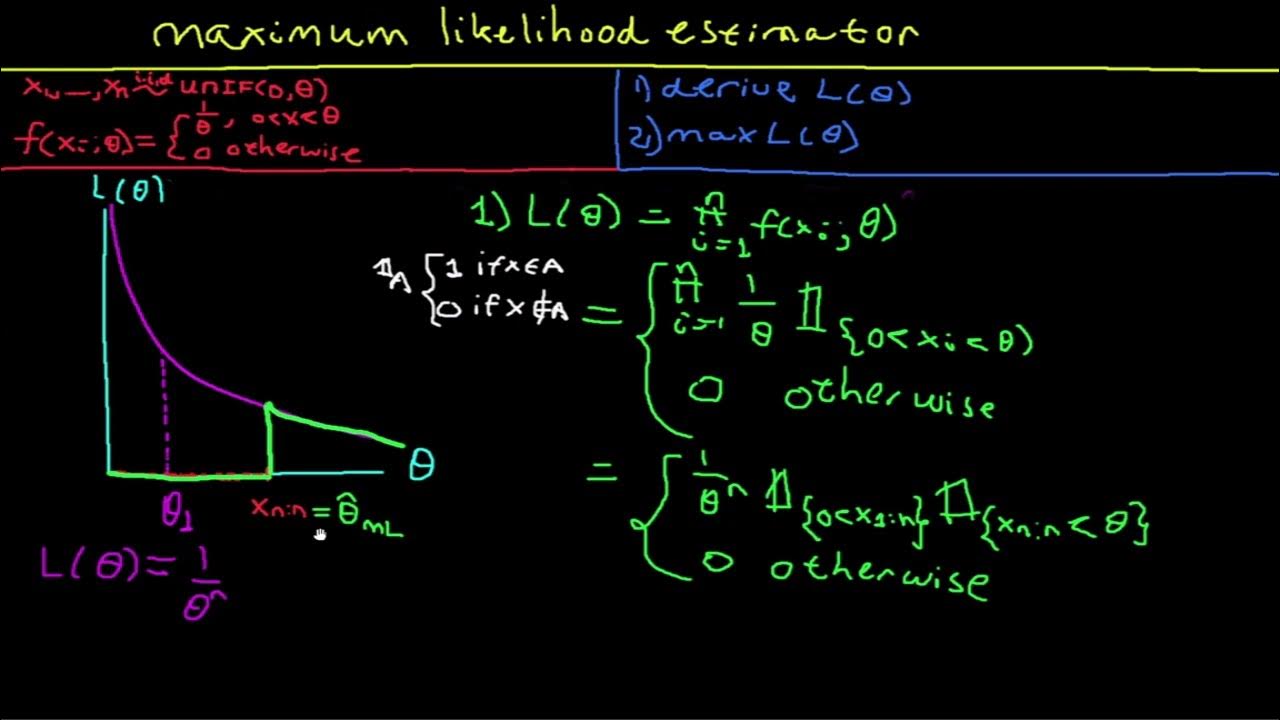 maximum likelihood estimator
x₁, —, xₙ i.i.d ~ UNIF(0,θ)
f(xᵢ;θ) = { 1/θ, 0<x<θ
0 otherwise
1) derive L(θ)
2) max L(θ)
L(θ)
1) L(θ) = ∏ i=1 n f(xᵢ; θ)
𝟙_A { 1 if x∈A
0 if x∉A
= { ∏ i=1 n 1/θ 𝟙 {0< xᵢ < θ)
0 otherwise
= { 1/θⁿ 𝟙 {0<x₁:n} 𝟙 {xn:n < θ}
0 otherwise
θ
θ₁
xn:n = θ̂ mL
L(θ) = 1/θⁿ